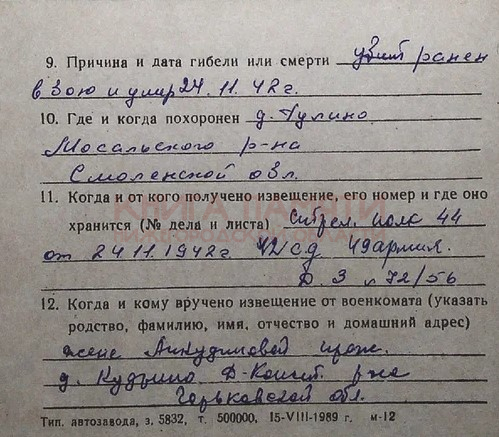 9. Причина и дата гибели или смерти убит ранен
в бою и умер 24.11.42 г.
10. Где и когда похоронен д. Тулино
Мосальского р-на
Смоленской обл.
11. Когда и от кого получено извещение, его номер и где оно
хранится (№ дела и листа) стрел. полк 44
от 24.11.1942 г 42 сд 49 армия.
Д. 3 л 72/56
КНИГА ПАМЯТИ
12. Когда и кому вручено извещение от военкомата (указать
родство, фамилию, имя, отчество и домашний адрес)
жене Анкудимовой прож.
д. Кудрино Д-Конст. р-на
Горьковской обл.
Тип. автозавода, з. 5832, т. 500000, 15-VIII-1989 г. м-12